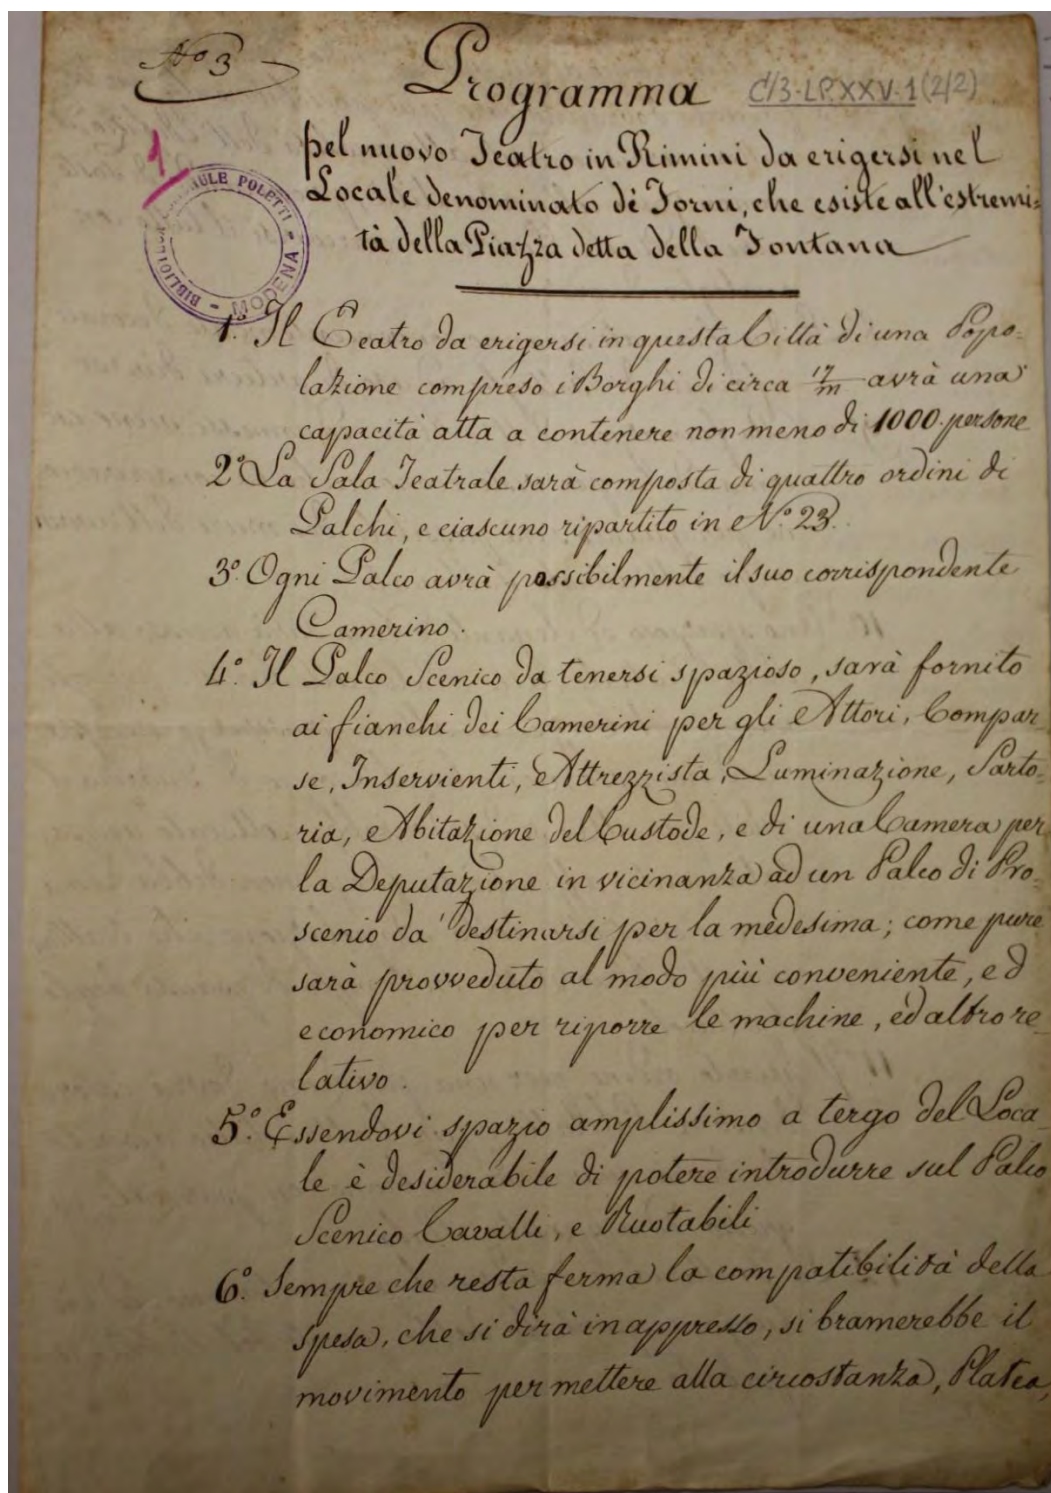 Nº 3
Programma
C/3-LP.XXV.1(2/2)
1
pel nuovo Teatro in Rimini da erigersi nel
Locale denominato dè Forni, che esiste all'estremi=
tà della Piazza detta della Fontana
POLETTI - MODENA - BIBLIOTECA
1.º Il Teatro da erigersi in questa Città di una Popo-
lazione compreso i Borghi di circa 17/m avrà una
capacità atta a contenere non meno di 1000. persone
2º La Sala Teatrale sarà composta di quattro ordini di
Palchi, e ciascuno ripartito in Nº 23.
3º. Ogni Palco avrà possibilmente il suo corrispondente
Camerino.
4º. Il Palco Scenico da tenersi spazioso, sarà fornito
ai fianchi dei Camerini per gli Attori, Compar-
se, Inservienti, Attrezzista, Luminazione, Sarto-
ria, Abitazione del Custode, e di una Camera per
la Deputazione in vicinanza ad un Palco di Pro-
scenio da destinarsi per la medesima; come pure
sarà provveduto al modo più conveniente, ed
economico per riporre le machine, ed altro re-
lativo.
5º. Essendovi spazio amplissimo a tergo del Loca-
le è desiderabile di potere introdurre sul Palco
Scenico Cavalli, e Ruotabili
6º. Sempre che resta ferma la compatibilità della
spesa, che si dirà inappresso, si bramerebbe il
movimento per mettere alla circostanza, Platea,